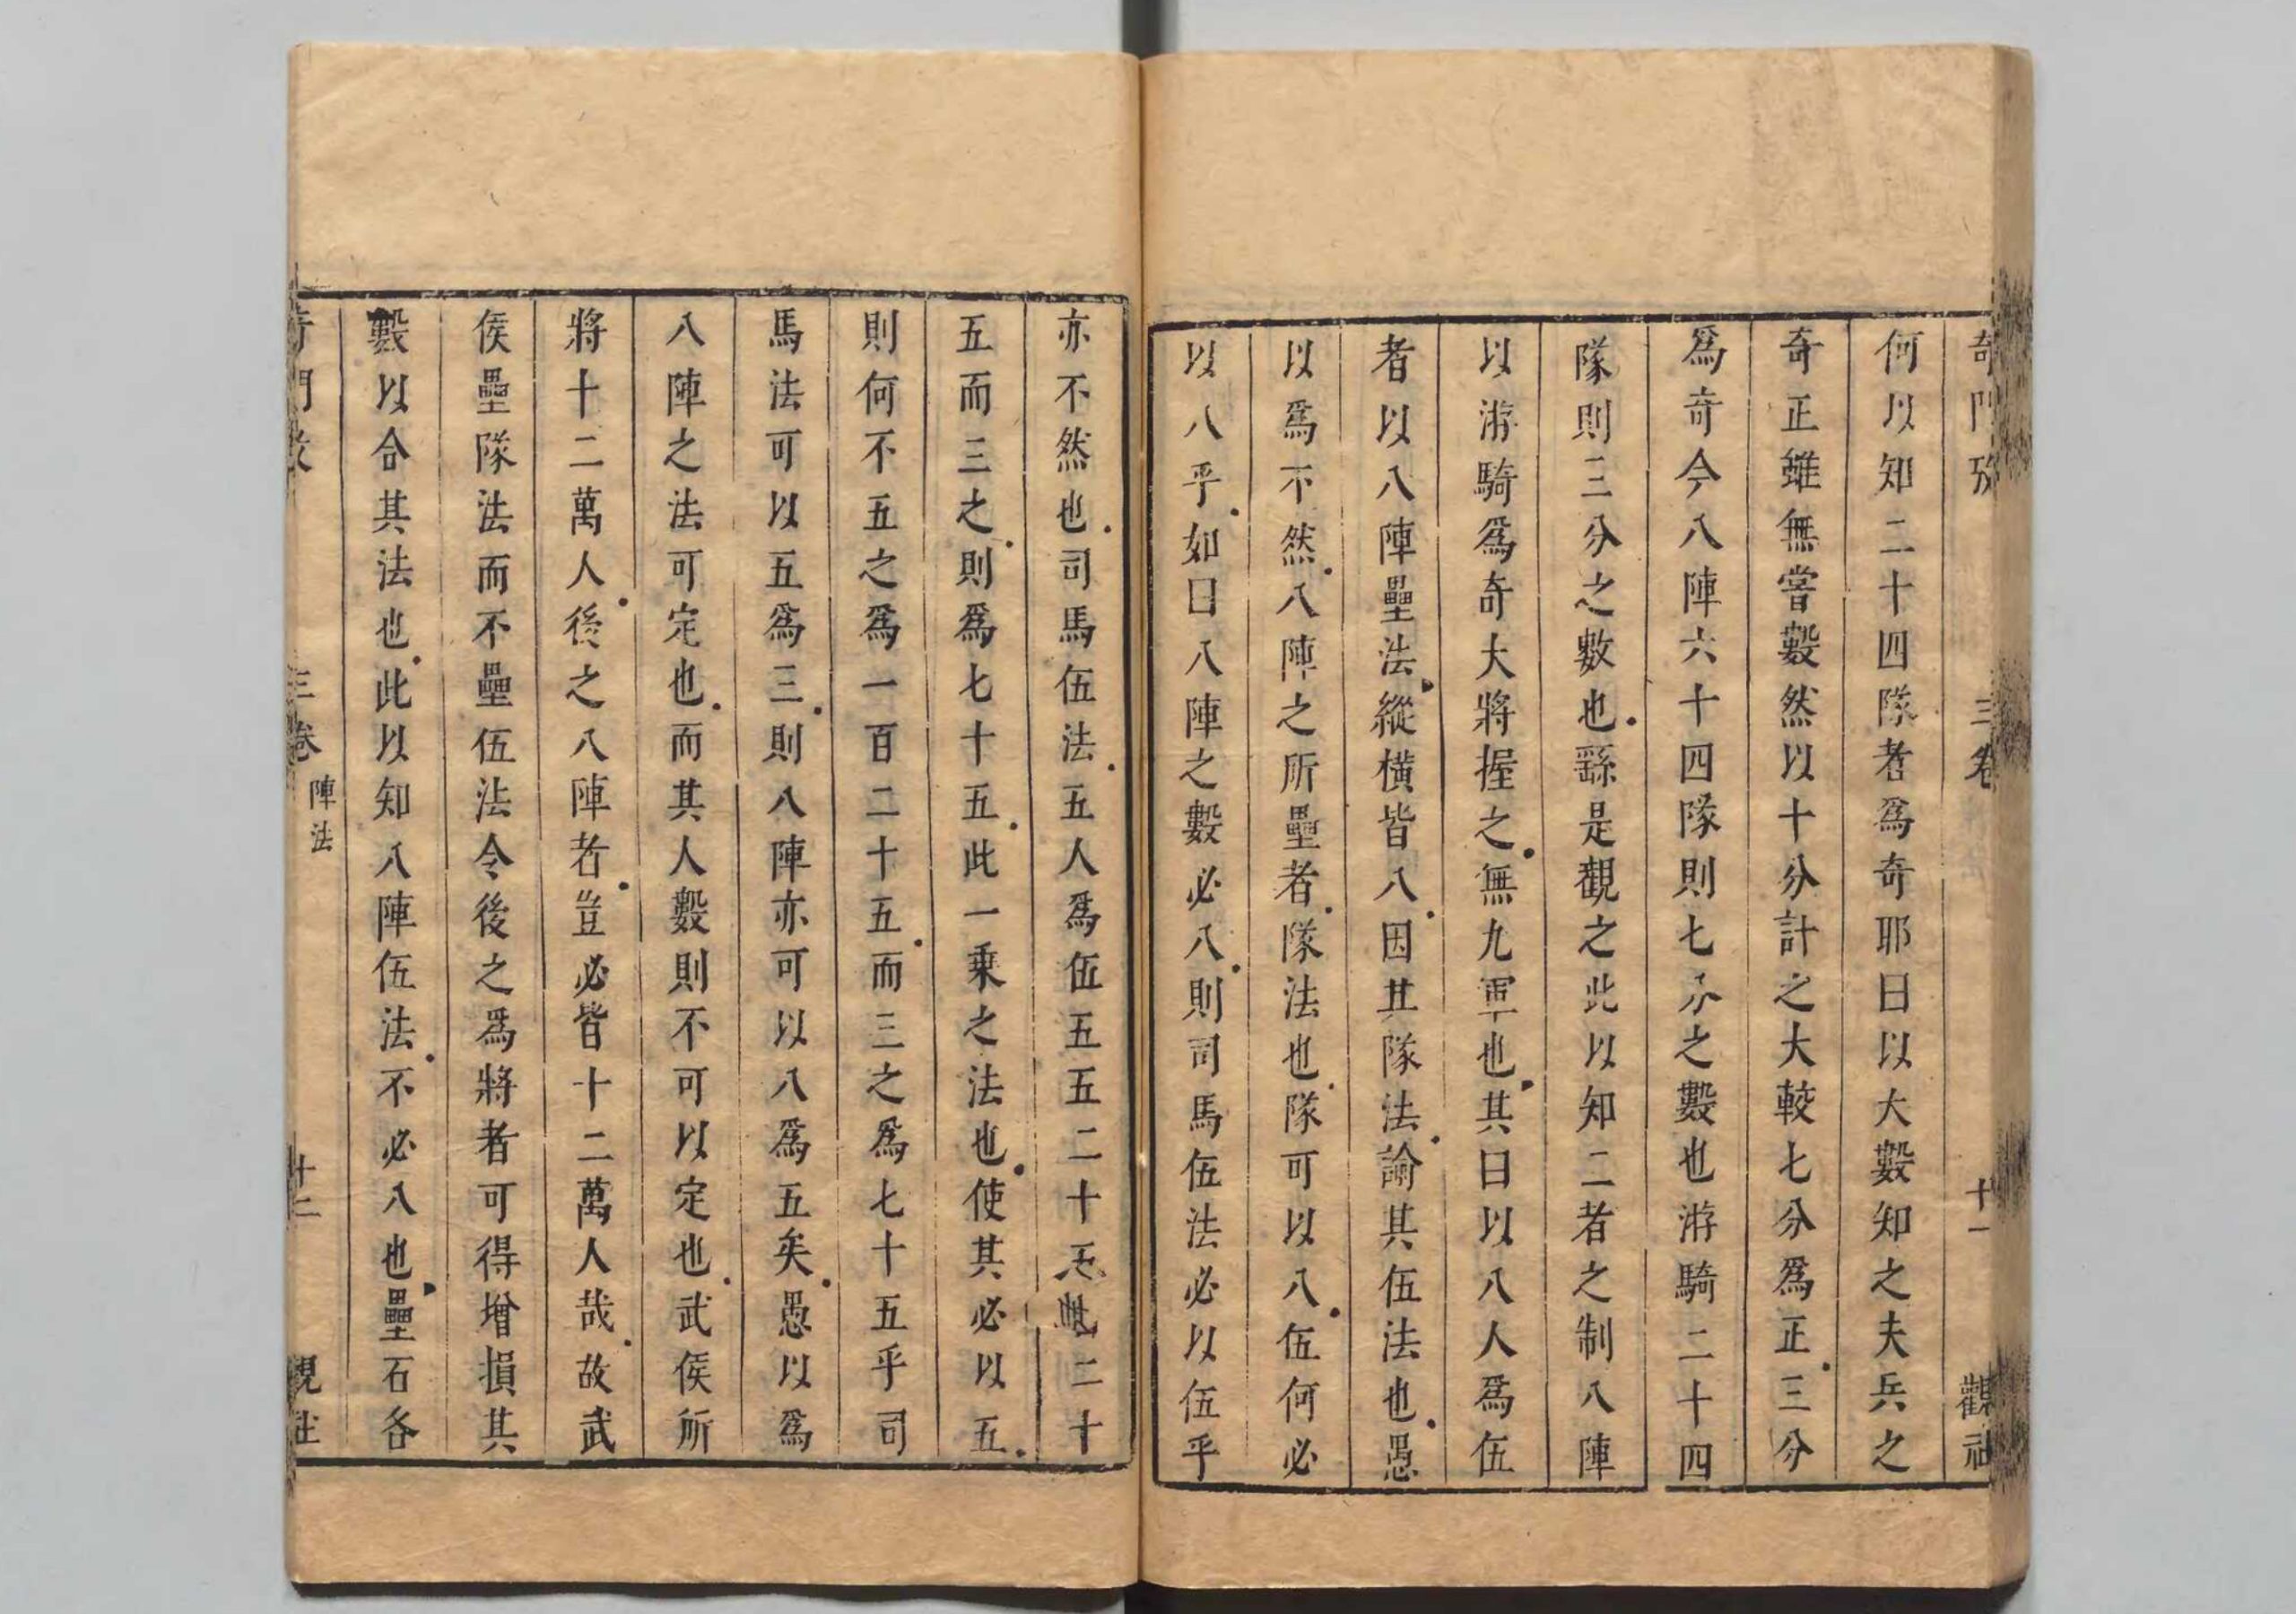 奇門攷 三卷 十一 觀社
何以知二十四隊者爲奇耶曰以大數知之夫兵之
奇正雖無甞數然以十分計之大較七分爲正三分
爲奇今八陣六十四隊則七分之數也游騎二十四
隊則三分之數也繇是觀之此以知二者之制八陣
以游騎爲奇大將握之無九軍也其曰以八人爲伍
者以八陣壘法縱橫皆八因其隊法論其伍法也愚
以爲不然八陣之所壘者隊法也隊可以八伍何必
以八乎如曰八陣之數必八則司馬伍法必以伍乎
亦不然也司馬伍法五人爲伍五五二十五此二十
五而三之則爲七十五此一乗之法也使其必以五
則何不五之爲一百二十五而三之爲七十五乎司
馬法可以五爲三則八陣亦可以八爲五矣愚以爲
八陣之法可定也而其人數則不可以定也武侯所
將十二萬人後之八陣者豈必皆十二萬人哉故武
侯壘隊法而不壘伍法令後之爲將者可得增損其
數以合其法也此以知八陣伍法不必八也壘石各
奇門攷 三卷 陣法 十二 觀社